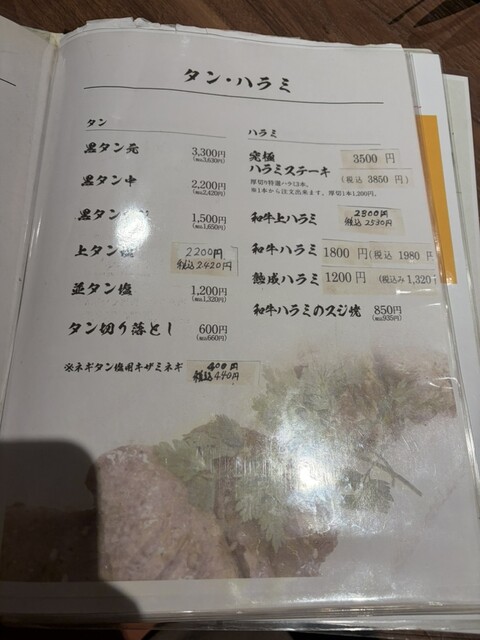 タン・ハラミ
タン
黒タン元 3,300円
(税込3,630円)
黒タン中 2,200円
(税込2,420円)
黒タン 1,500円
(税込1,650円)
上タン塩 2200円
税込2420円
並タン塩 1,200円
(税込1,320円)
タン切り落とし 600円
(税込660円)
※ネギタン塩用キザミネギ 400円
税込440円
ハラミ
究極
ハラミステーキ 3500 円
(税込 3850 円)
厚切り特選ハラミ3本。
※1本から注文出来ます。厚切1本1,200円。
和牛上ハラミ
税込2530円
和牛ハラミ 1800 円(税込 1980 円
熟成ハラミ 1200 円 (税込み 1,320
和牛ハラミのスジ焼 850円
(税込935円)